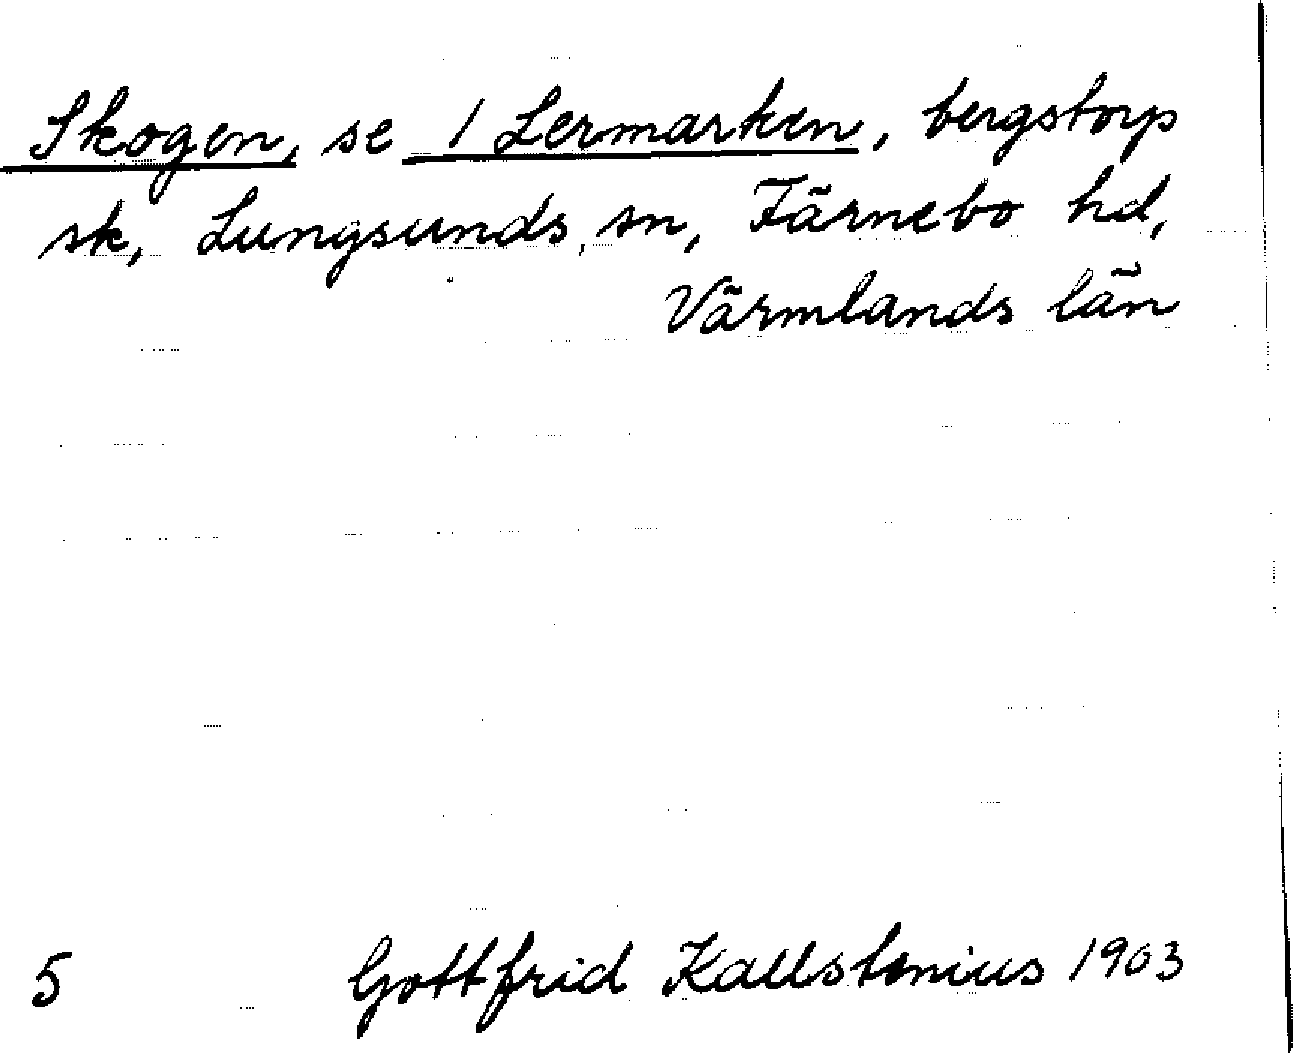 Skogen, se 1 Lermarken, bergstorp
sk, Lungsunds sn, Färnebo hd,
Värmlands län
5 Gottfrid Kallstenius 1903